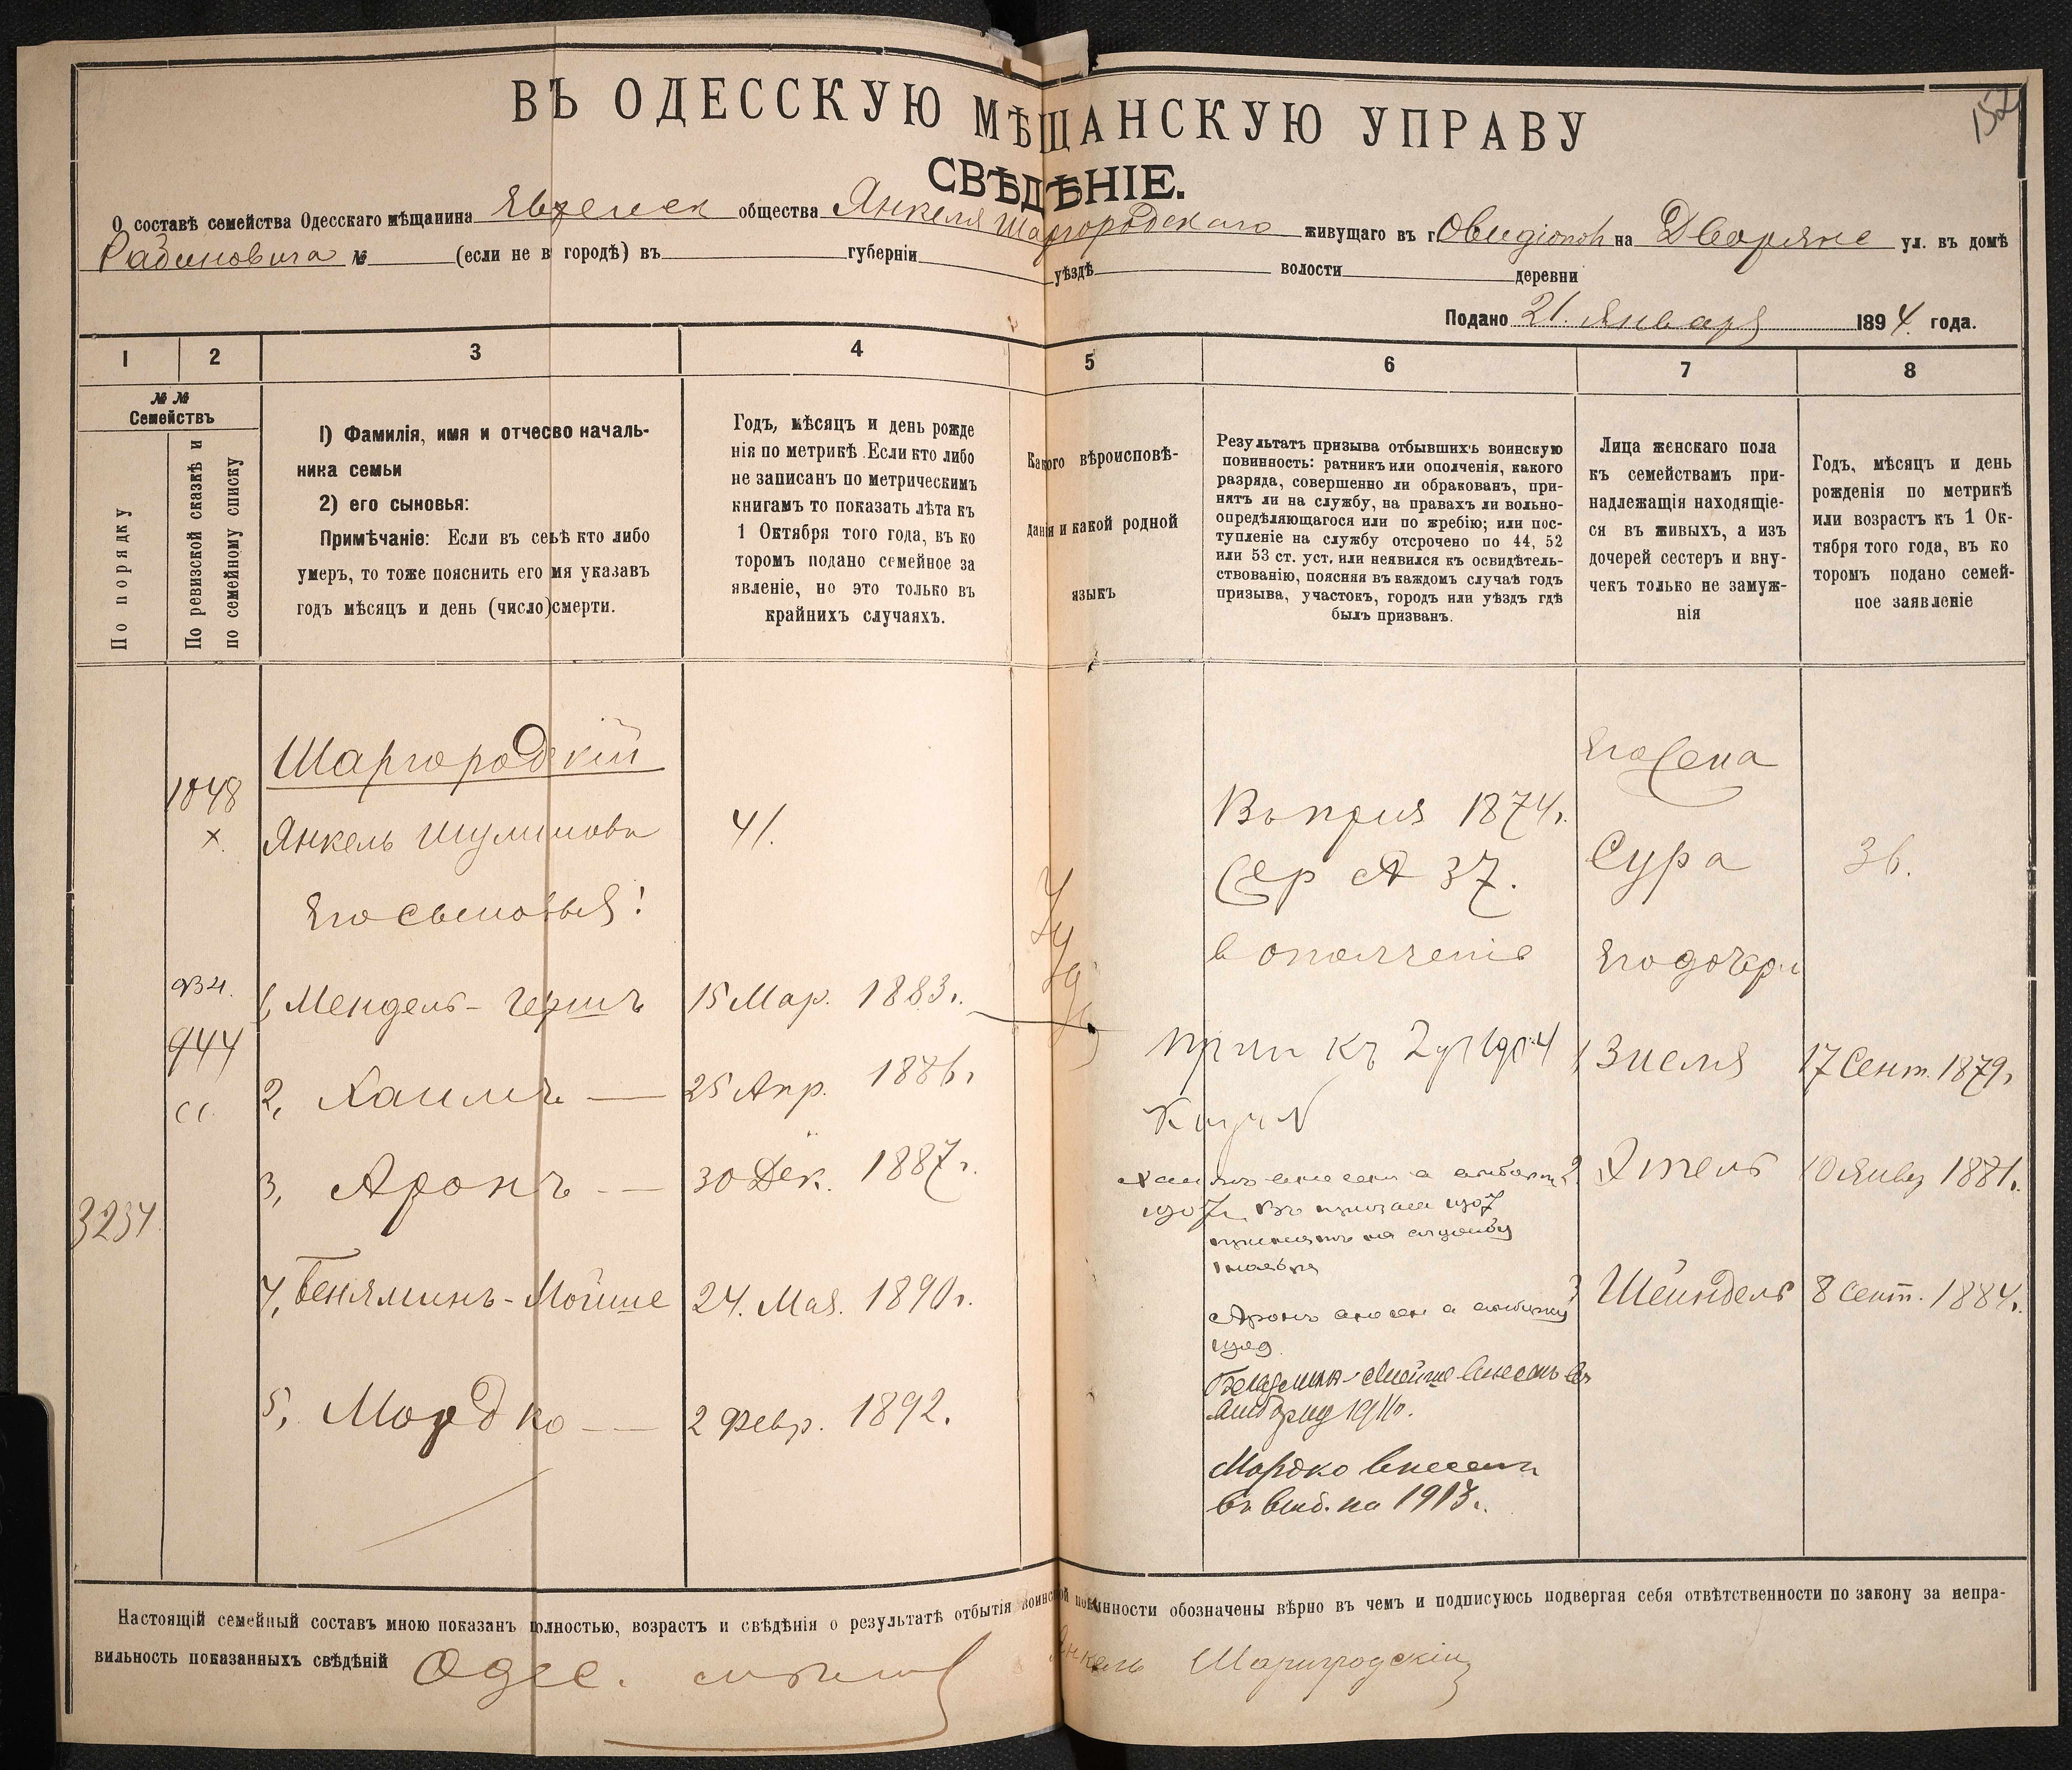 152
ВЪ ОДЕССКУЮ МѢЩАНСКУЮ УПРАВУ
СВѢДѢНІЕ.
О составѣ семейства Одесскаго мѣщанина Еврейск общества Янкеля Шаргородскаго живущаго въ г. Овидіополѣ на Дворянс ул. въ домѣ
Рабиновича № (если не въ городѣ) въ губерніи уѣздѣ волости деревни
Подано 21. Января 1894. года.
1 2 3 4 5 6 7 8
№ №
Семействъ
По порядку
По ревизской сказкѣ и
по семейному списку
1) Фамилія, имя и отчесво началь-
ника семьи
2) его сыновья:
Примѣчаніе: Если въ семьѣ кто либо
умеръ, то тоже пояснить его имя указавъ
годъ мѣсяцъ и день (число) смерти.
Годъ, мѣсяцъ и день рожде
нія по метрикѣ. Если кто либо
не записанъ по метрическимъ
книгамъ то показать лѣта къ
1 Октября того года, въ ко
торомъ подано семейное за
явленіе, но это только въ
крайнихъ случаяхъ.
Какого вѣроисповѣ-
данія и какой родной
языкъ
Результатъ призыва отбывшихъ воинскую
повинность: ратникъ или ополченія, какого
разряда, совершенно ли обракованъ, при-
нятъ ли на службу, на правахъ ли вольно-
опредѣляющагося или по жребію; или пос-
тупленіе на службу отсрочено по 44, 52
или 53 ст. уст. или неявился къ освидѣтель-
ствованію, поясняя въ каждомъ случаѣ годъ
призыва, участокъ, городъ или уѣздъ гдѣ
былъ призванъ.
Лица женскаго пола
къ семействамъ при-
надлежащія находящіе-
ся въ живыхъ, а изъ
дочерей сестеръ и вну-
чекъ только не замуж-
нія
Годъ, мѣсяцъ и день
рожденія по метрикѣ
или возрастъ къ 1 Ок-
тября того года, въ ко
торомъ подано семей-
ное заявленіе
Шаргородскій
1048
х
Янкель Шулимовъ 41.
Его сыновья:
934.
1, Мендель-Гершъ 15 Мар. 1883г.
944
2, Хаимъ — 25 Апр. 1886г
3, Аронъ — 30 Дек. 1887г.
3234
4, Беняминъ-Мойше 24. Мая. 1890г.
5, Мордко — 2 Февр. 1892.
1874г.
А 37.
в ополченіе
Хаимъ внесенъ в
1907 въ призыв 1907
принятъ на службу
Аронъ внесен в
Беньямин-Мойше внесенъ въ
1911г.
Мордко внесенъ
въ выб. на 1913г.
Его жена
Сура 36.
Его дочери
1, Зисля 17 Сент. 1879г
2 Этель 10 Янвр 1881г.
3 Шейндель 8 Сент. 1884г.
Настоящій семейный составъ мною показанъ полностью, возрастъ и свѣдѣнія о результатѣ отбытія воинской повинности обозначены вѣрно въ чемъ и подписуюсь подвергая себя отвѣтственности по закону за непра-
вильность показанныхъ свѣдѣній Одес. Янкель Шаргородскій